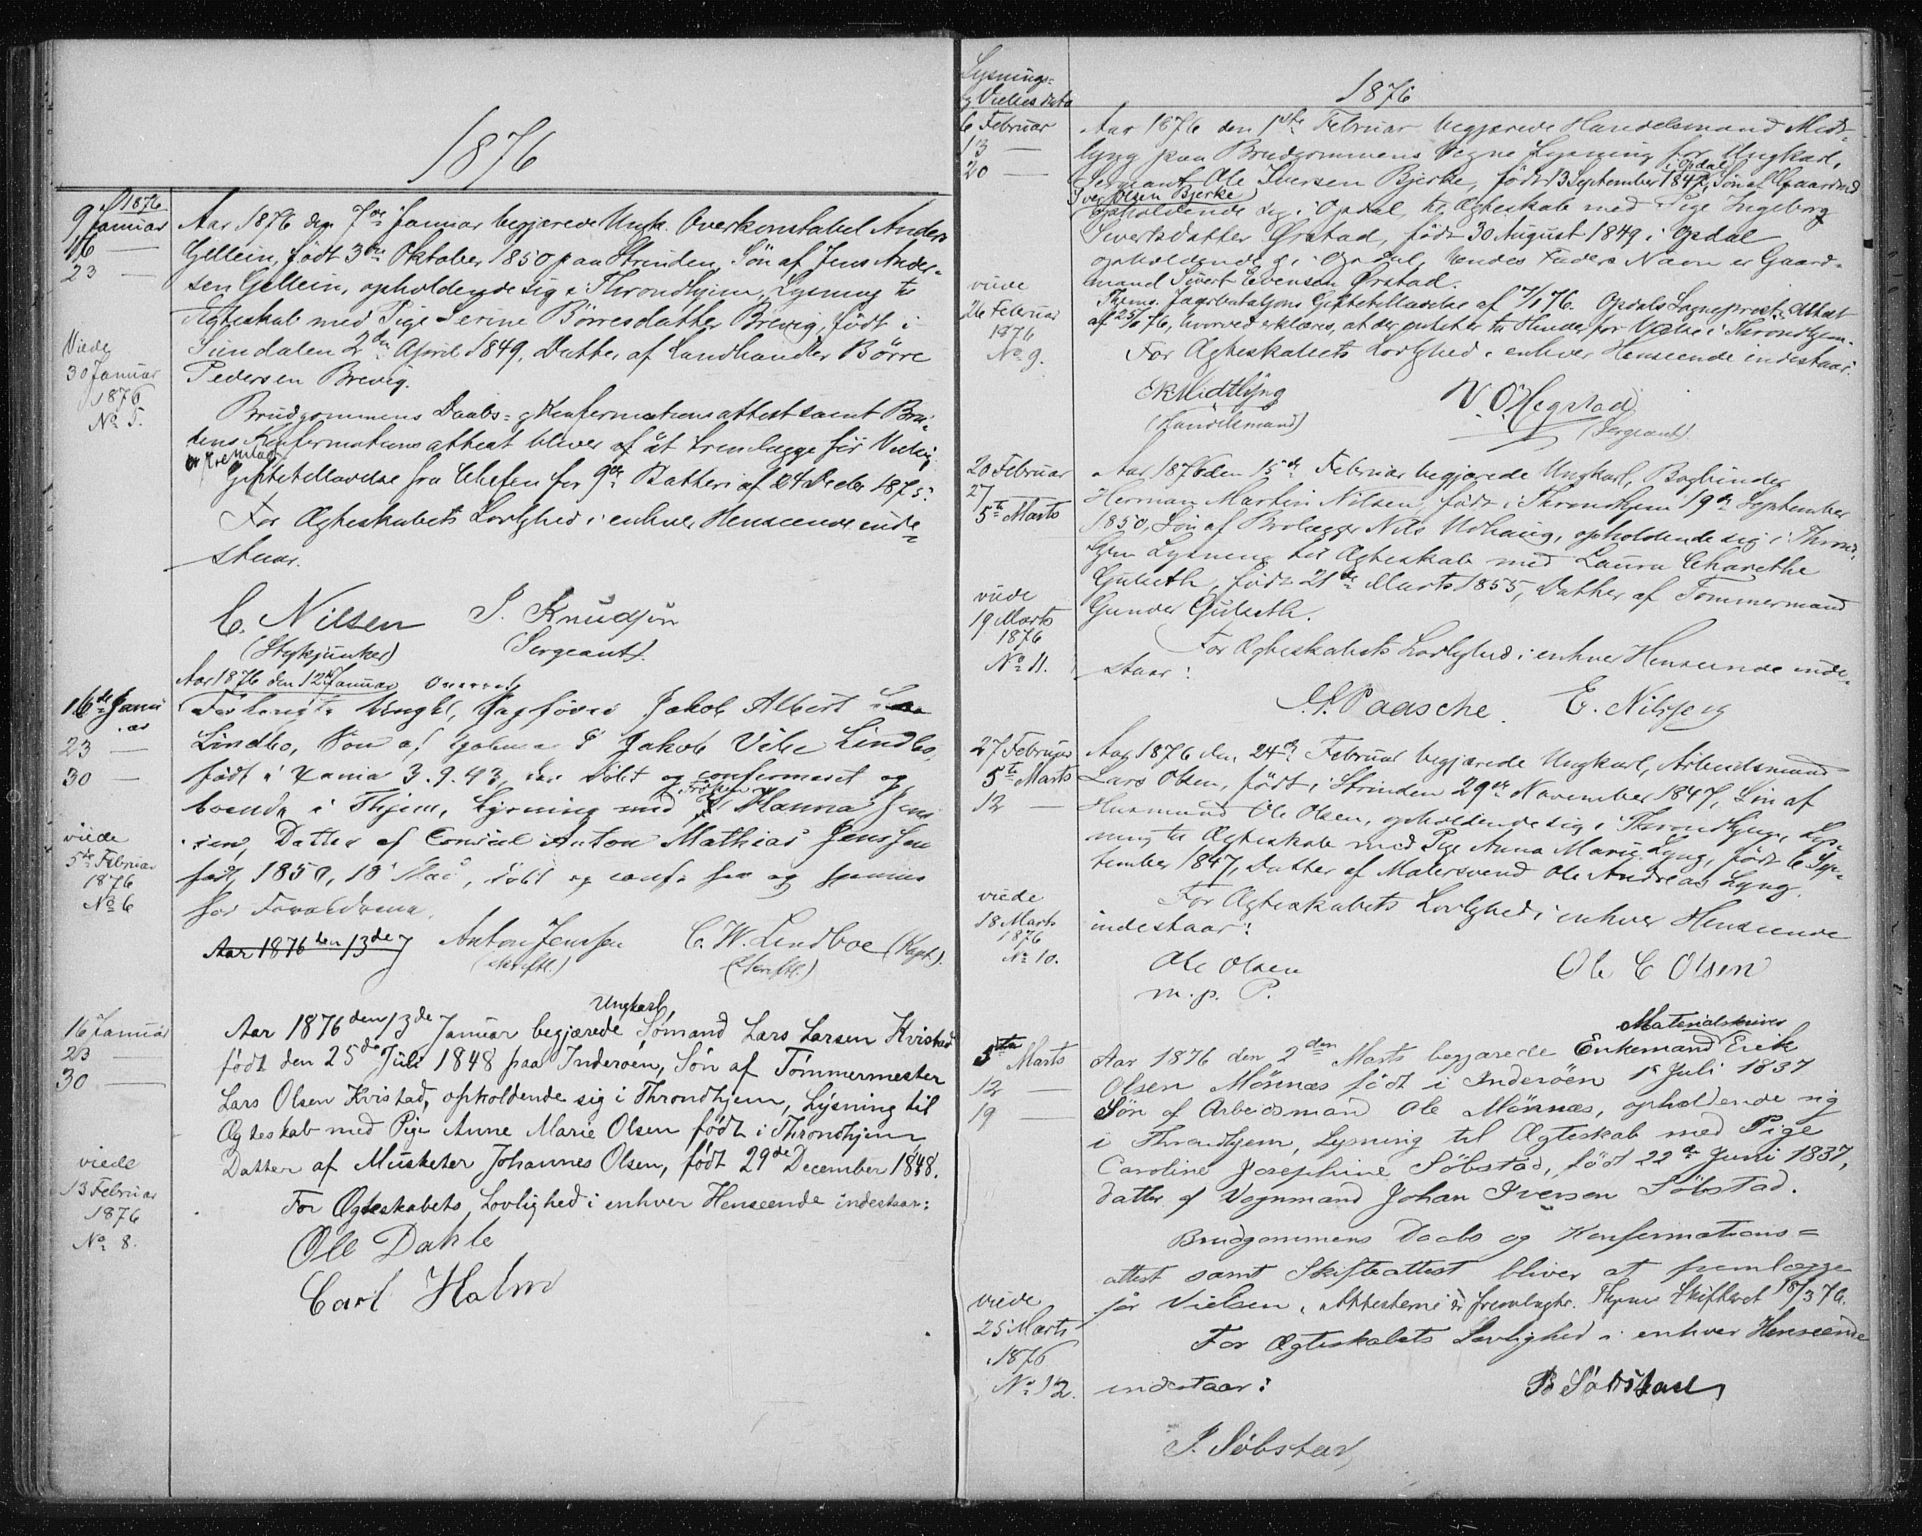 1876
1876
9 Januar
16 —
23 —
Aar 1876 den 7de Januar begjærede Ungk. Overkonstabel Anders
Gellein, født 3die Oktober 1850 paa Strinden, Søn af Jens Ander-
sen Gellein, opholdende sig i Throndhjem, Lysning til
Ægteskab med Pige Serine Børresdatter Brevig, født i
Sundalen 2den April 1849, Datter af Landhandler Børre
Pedersen Brevig.
Viede
30 Januar
1876
No 5.
Brudgommens Daabs- og Konfirmationsattest samt Bru-
dens Konfirmationsattest bliver at fremlægge før Vielsen.
er fremlagt
Giftetilladelse fra Chefen for 9de Batteri af 24 Decbr 1875.
For Ægteskabets Lovlighed i enhver Henseende inde-
staar.
C. Nilsen
(Stykjunker)
J. Knudsen
(Sergeant)
Aar 1876 den 12te Januar
16de Janu
ar
23 —
30 —
Forlangte Ungkl, Sagfører Jakob Albert
Lindbo, Søn af Jakob Vibe Lindbo,
født i Xania 3.9.43, der døbt og confirmeret og
boende i Thjem, Lysning med Frøken Hanna Jens
sen, Datter af Consul Anton Mathias Jenssen
født 1850, 10 Mai, døbt og conf. her og hjemme
hos Forældrene.
viede
5te Februar
1876
No 6
Aar 1876 den 13de J
Anton Jenssen
(skriftl.)
C. W. Lindboe (Kapt.)
(skriftl.)
16 Januar
23 —
30 —
Ungkarl
Aar 1876 den 13de Januar begjærede Sømand Lars Larsen Kvistad
født den 25de Juli 1848 paa Inderøen, Søn af Tømmermester
Lars Olsen Kvistad, opholdende sig i Throndhjem, Lysning til
Ægteskab med Pige Anne Marie Olsen født i Throndhjem
Datter af Musketer Johannes Olsen, født 29de December 1848.
viede
13 Februar
1876
No 8.
For Ægteskabets Lovlighed i enhver Henseende indestaar:
Ole Dahle
Carl Holm
Lysnings-
og Vielsesdata
1876
6 Februar
13 —
20 —
Aar 1876 den 1ste Februar begjærede Handelsmand Midt-
lyng paa Brudgommens Vegne Lysning for Ungkarl,
Sergeant Ole Iversen Bjerke, født 13 September 1847 i Opdal, Søn af Gaardmd
Iver Olsen Bjerke
opholdende sig i Opdal, til Ægteskab med Pige Ingeborg
Sivertsdatter Ørstad, født 30 August 1849 i Opdal
opholdende s. i Opdal, hendes Faders Navn er Gaard-
mand Sivert Evensen Ørstad.
viede
26 Februar
1876
No 9.
Thjms. Jægerbataljons Giftetilladelse af 7/1 76. Opdals Sogneprests Attest
af 25/1 76, hvorved erklæres, at der intet er til Hinder for Vielse i Throndhjem.
For Ægteskabets Lovlighed i enhver Henseende indestaar:
EK Midtlyng
(Handelsmand)
N. O. Hegstad
(Sergeant)
20 Februar
27
5te Marts
Aar 1876 den 15de Februar begjærede Ungkarl, Bogbinder
Herman Martin Nilsen, født i Throndhjem 19de September
1850, Søn af Brolægger Nils Udhaug, opholdende sig i Thrond-
hjem Lysning til Ægteskab med Laura Charethe
Gulseth, født 21de Marts 1855, Datter af Tømmermand
Gunder Gulseth.
viede
19 Marts
1876
No 11.
For Ægteskabets Lovlighed i enhver Henseende inde-
staar:
Paasche. E. Nilsen
27 Februar
5te Marts
12 —
Aar 1876 den 24de Februar begjærede Ungkarl, Arbeidsmand
Lars Olsen, født i Strinden 29de November 1847, Søn af
Husmand Ole Olsen, opholdende sig i Throndhjem, Lys-
ning til Ægteskab med Pige Anna Marie Lyng, født 6 Sep-
tember 1847, Datter af Malersvend Ole Andreas Lyng.
viede
18 Marts
1876
No 10.
For Ægteskabets Lovlighed i enhver Henseende
indestaar:
Ole Olsen
m. p. P.
Ole C Olsen
5te Marts
12 —
19 —
Materialskriver
Aar 1876 den 2den Marts begjærede Enkemand Erik
Olsen Mønnæs født i Inderøen 1ste Juli 1837
Søn af Arbeidsmand Ole Mønnæs, opholdende sig
i Throndhjem, Lysning til Ægteskab med Pige
Caroline Josephine Søbstad, født 22de Juni 1837,
datter af Vognmand Johan Iversen Søbstad.
Brudgommens Daabs og Konfirmations-
attest samt Skifteattest bliver at fremlægge
før Vielsen. Attesterne er fremlagte. Thjems Skifteret 18/3 76.
viede
25 Marts
1876
No 12.
For Ægteskabets Lovlighed i enhver Henseende
indestaar:
B Søbstad
J. Søbstad